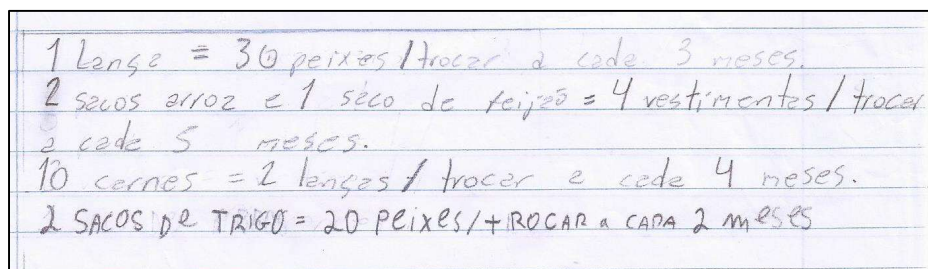 1 Lança = 30 peixes / trocar a cada 3 meses.
2 sacos arroz e 1 saco de feijão = 4 vestimentas / trocar
a cada 5 meses.
10 carnes = 2 lanças / trocar a cada 4 meses.
2 SACOS De TRIGO = 20 Peixes / +ROCAR a CADA 2 meses